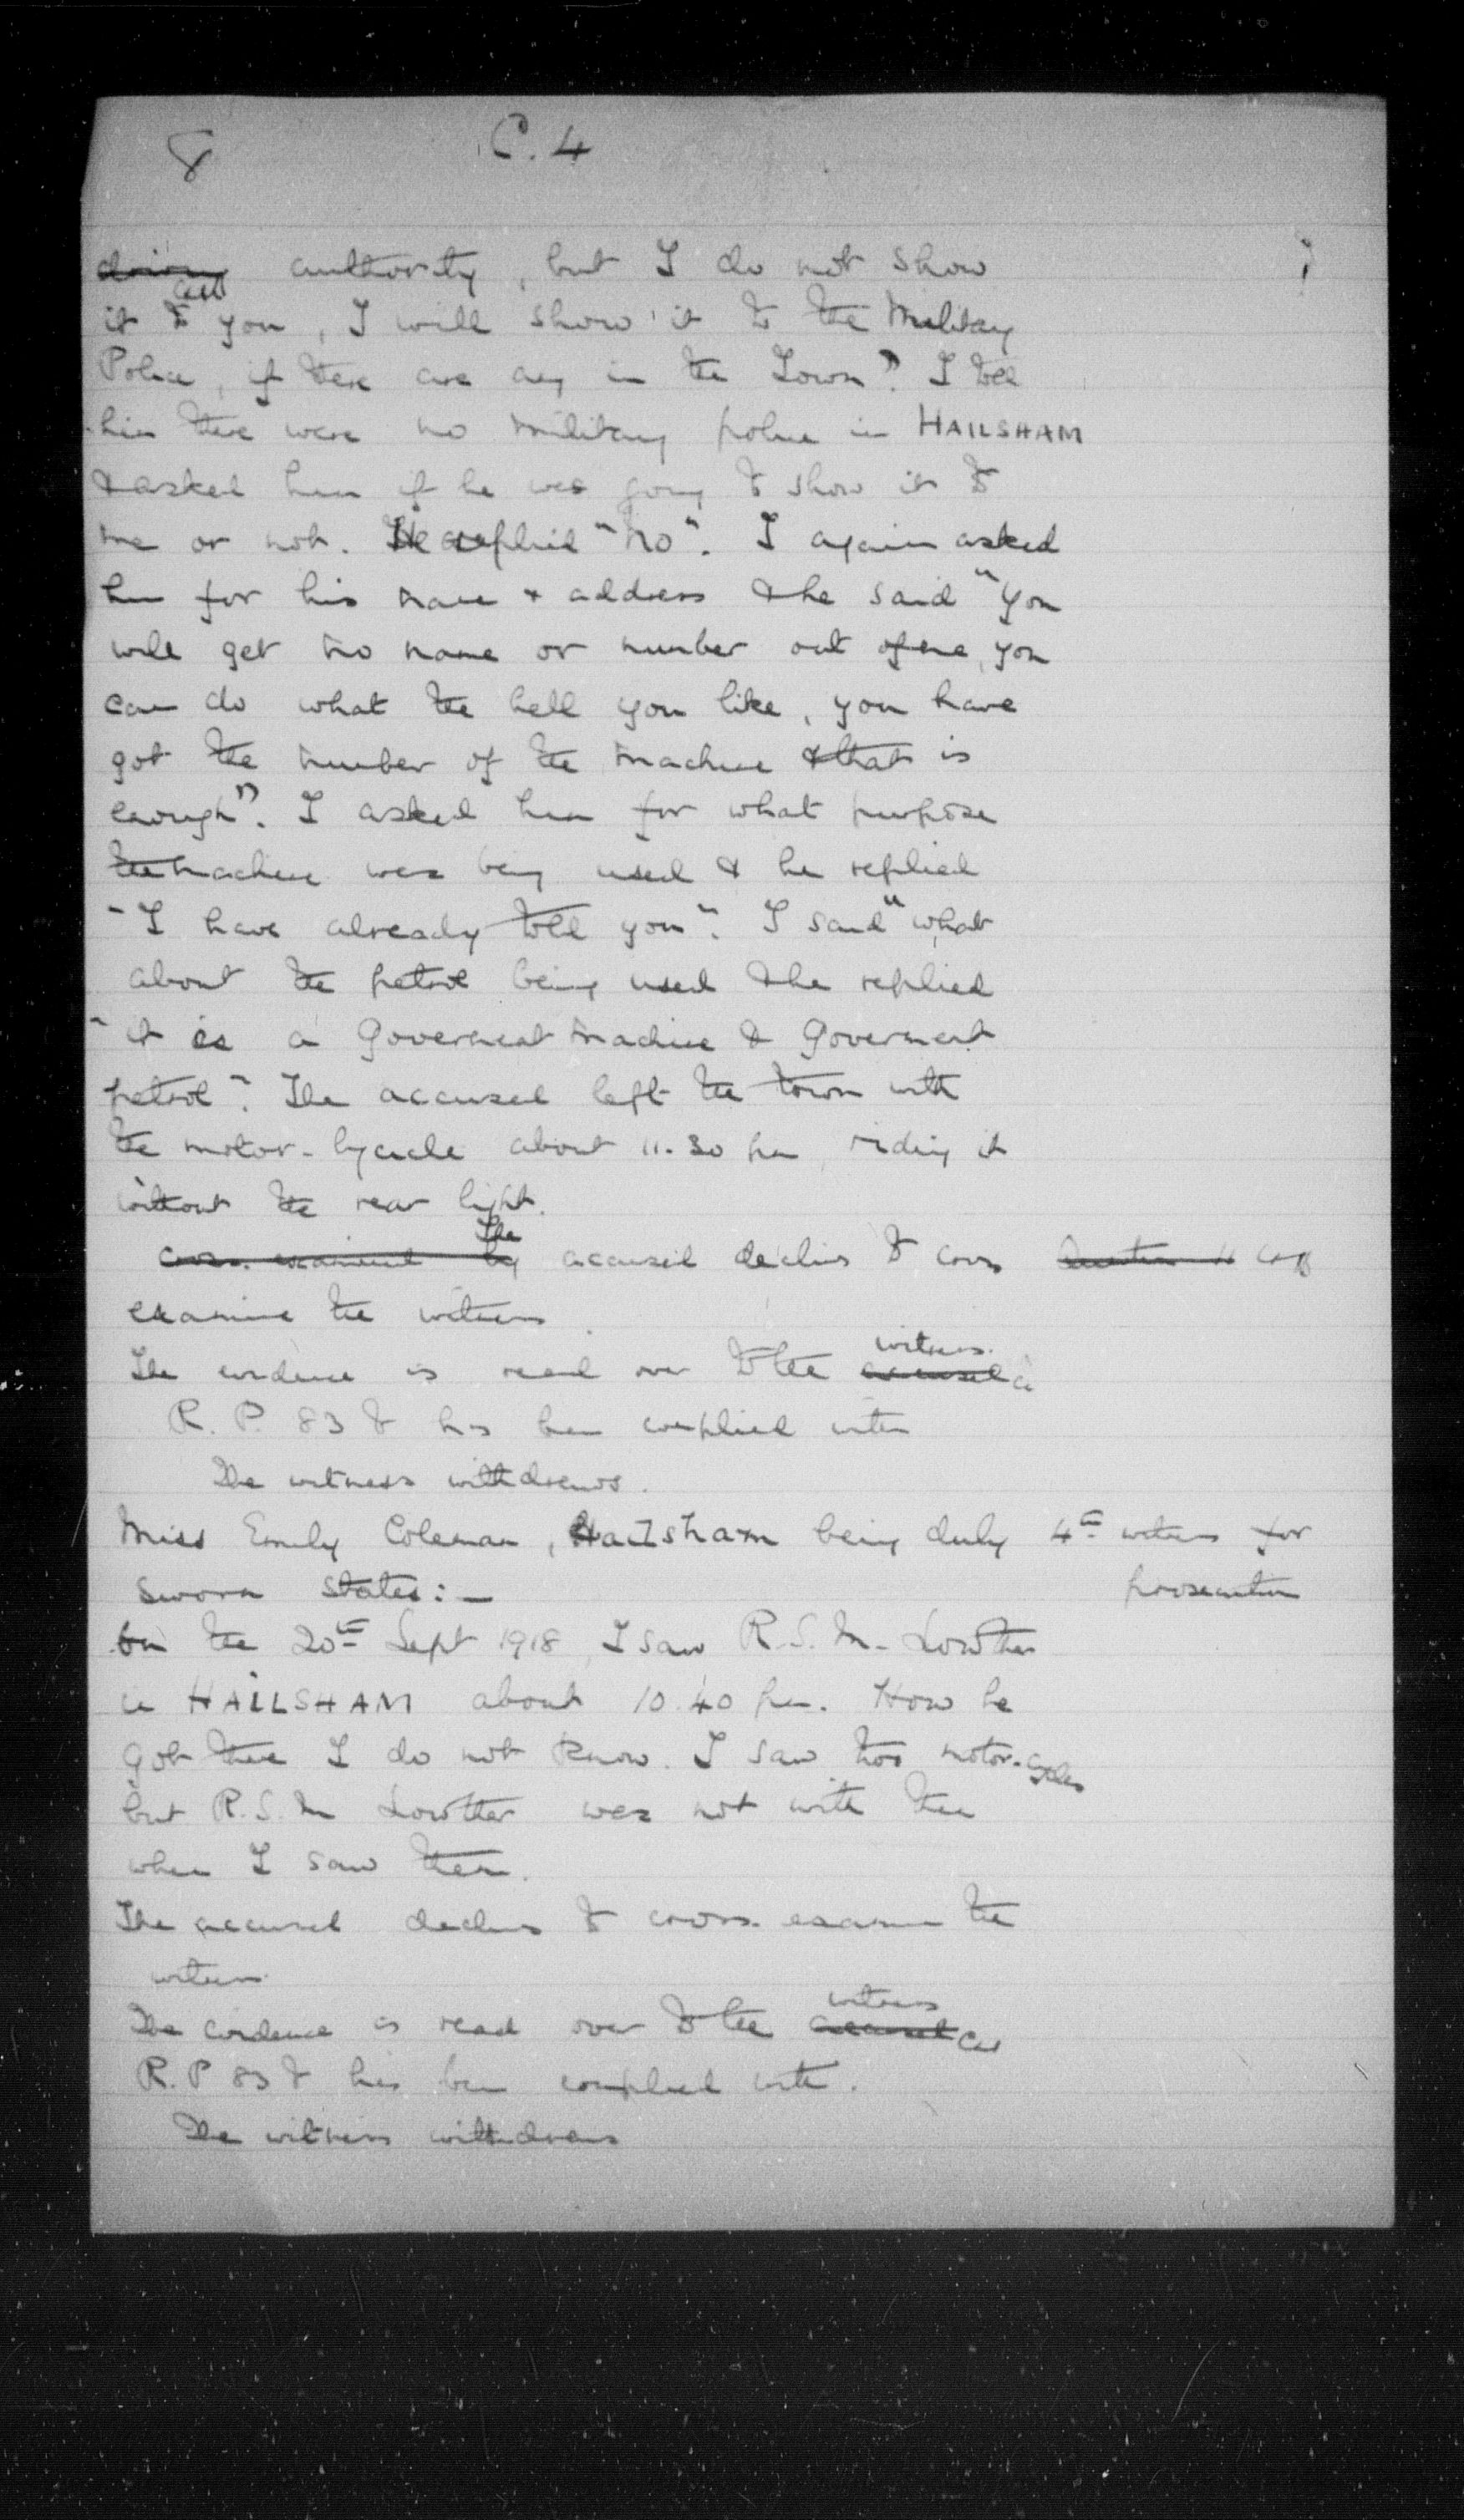 8 C.4
driving authority, but I do not show
it to you, I will show it to the Military
Police, if there are any in the Town". I told
him there were no military police in HAILSHAM
& asked him if he was going to show it to
me or not. He replied "No". I again asked
him for his name & address & he said "you
will get no name or number out of me, you
can do what the hell you like, you have
got the number of the machine & that is
enough". I asked him for what purpose
the machine was being used & he replied
"I have already told you". I said "what
about the petrol being used & he replied
"it is a Government machine & Government
petrol". The accused left the town with
the motor-bycicle about 11.30 pm, riding it
without the rear light.
The
cross. examined by accused declines to cross
examine the witness.
witness.
The evidence is read over to the accused
R.P. 83 B has been complied with
The witness withdraws.
Miss Emily Coleman, Hailsham being duly 4th witness for
sworn states:- prosecution
On the 20th Sept 1918, I saw R.S.M. Lowther
in HAILSHAM about 10.40 pm. How he
got there I do not know. I saw two motor-cycles
but R.S.M Lowther was not with them
when I saw them.
The accused declines to cross-examine the
witness.
witness
The evidence is read over to the accused
R.P 83 B has been complied with.
The witness withdraws